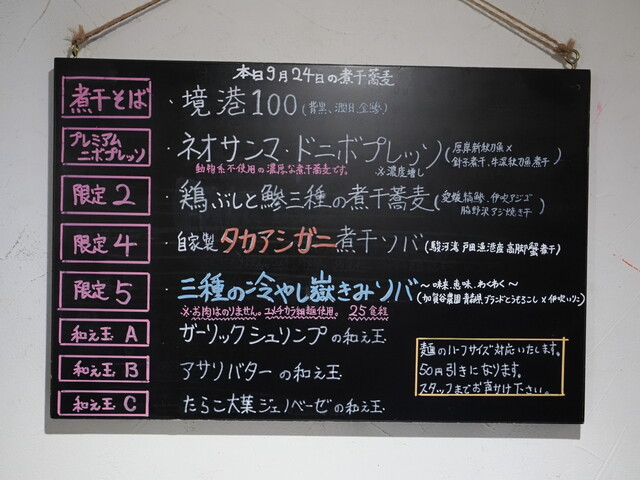 本日9月24日の煮干蕎麦
煮干そば ・境港100(背黒、潤目、金鯵)
プレミアムニボプレッソ ・ネオサンマ・ドニボプレッソ(原岸新秋刀魚×
針子煮干、牛深秋刀魚煮干)
動物系不使用の濃厚な煮干蕎麦です。 ※濃度増し
限定2 ・鶏ぶしと鯵三種の煮干蕎麦(愛媛縞鯵、伊吹アジコ
脇野沢アジ焼き干)
限定4 ・自家製タカアシガニ煮干ソバ(駿河湾 戸田漁港産高脚蟹煮干)
限定5 ・三種の冷やし嶽きみソバ ～味来、恵味、わくわく～
(加賀谷農園 青森県ブランドとうもろこし×伊吹いりこ)
※お肉はのりません。ユメチカラ細麺使用。 25食程
和え玉 A ガーリックシュリンプの和え玉
和え玉 B アサリバターの和え玉
和え玉 C たらこ大葉ジェノベーゼの和え玉
麺のハーフサイズ対応いたします。
50円引きになります。
スタッフまでお声がけ下さい。